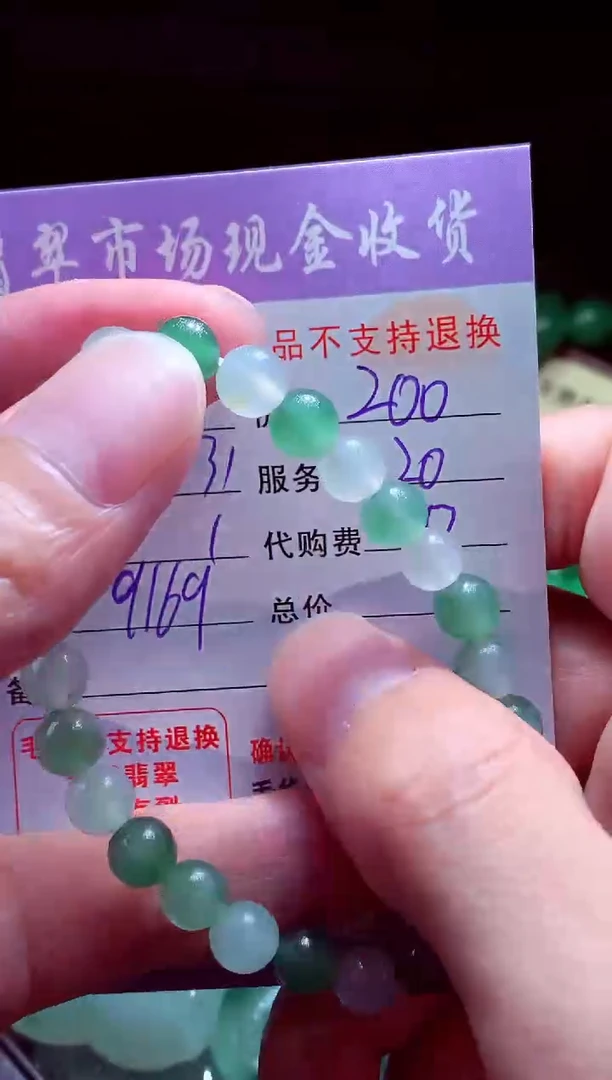 翠市场现金收货
品不支持退换
价 200
31 服务 20
1 代购费
9169 总价
备
支持退换 确认
翡翠